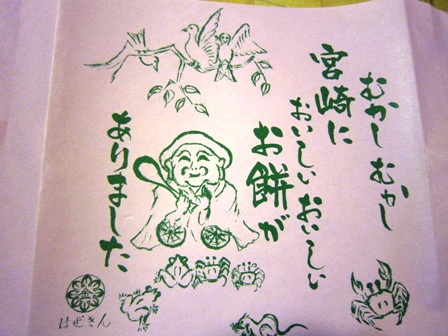 むかしむかし
宮崎に
おいしいおいしい
お餅が
ありました
はせきん